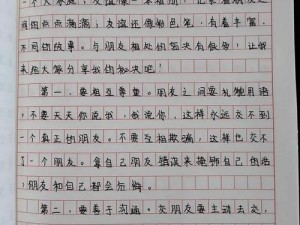 一个大家庭，友谊还像一本相册，记录着朋友之
间的点点滴滴；友谊还像粉色笔，有着丰富、
不同的故事。与朋友相处的秘诀有很多，让我
来给大家分享我的秘诀吧！
第一，要相互尊重。朋友之间要礼貌用语
，不要天天你说我，我说你，这样永远交不到
一个真正的朋友。不要互相欺骗，这样也交不
了一个朋友。拿自己朋友错误来掩饰自己的
，朋友和自己都会后悔。
第二，要善于沟通。交朋友要主动去交，